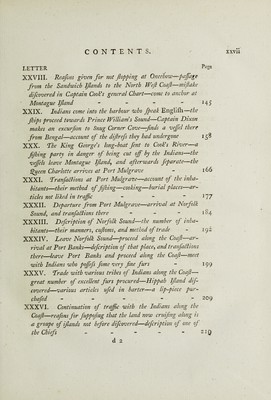 CONTENTS. xxvii
LETTER Page
XXVIII. Reaſons given for not ſtopping at Owerhow—paſſage
from the Sandwich Iſlands to the North Weſt Coaſt—miſtake
diſcovered in Captain Cook's general Chart—come to anchor at
Montague Iſland - - - 145
XXIX. Indians come into the harbour who ſpeak Engliſh—the
ſhips proceed towards Prince William's Sound—Captain Dixon
makes an excurſion to Snug Corner Cove—finds a veſſel there
from Bengal—account of the diſtreſs they had undergone 158
XXX. The King George's long-boat ſent to Cook's River—a
fiſhing party in danger of being cut off by the Indians—the
veſſels leave Montague Iſland, and afterwards ſeparate—the
Queen Charlotte arrives at Port Mulgrave - 166
XXXI. Tranſactions at Port Mulgrave—account of the inha-
bitants—their method of fiſhing—cooking—burial places—ar-
ticles not liked in traffic - - - 177
XXXII. Departure from Port Mulgrave—arrival at Norfolk
Sound, and tranſactions there - - 184
XXXIII. Deſcription of Norfolk Sound—the number of inha-
bitants—their manners, cuſtoms, and method of trade - 192
XXXIV. Leave Norfolk Sound—proceed along the Coaſt—ar-
rival at Port Banks—deſcription of that place, and tranſactions
there—leave Port Banks and proceed along the Coaſt—meet
with Indians who poſſeſs ſome very fine furs - 199
XXXV. Trade with various tribes of Indians along the Coaſt—
great number of excellent furs procured—Hippah Iſland diſ-
covered—various articles uſed in barter—a lip-piece pur-
chaſed - - - - 209
XXXVI. Continuation of traffic with the Indians along the
Coaſt—reaſons for ſuppoſing that the land now cruiſing along is
a groupe of iſlands not before diſcovered—deſcription of one of
the Chiefs - - - - 219
d 2